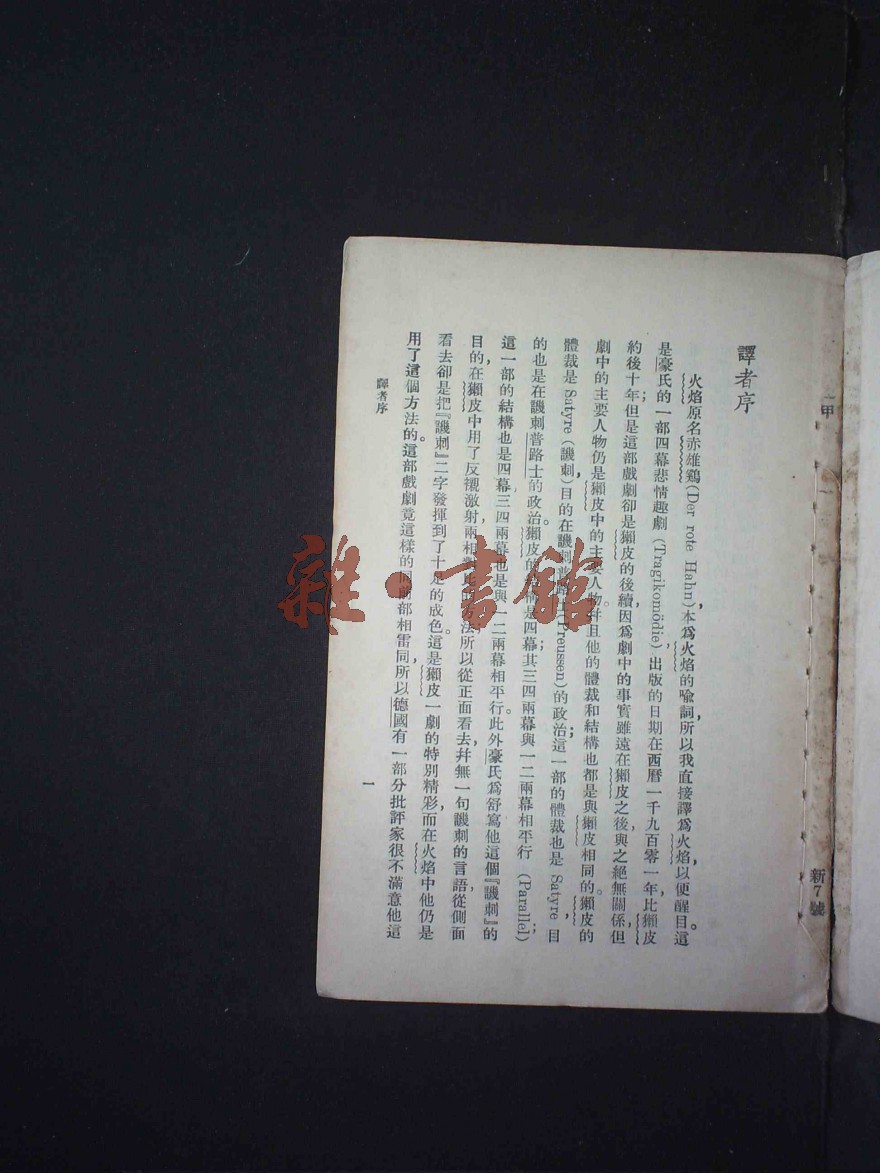 譯者序
火焰原名赤雄鷄(Der rote Hahn),本爲火焰的喩詞,所以我直接譯爲火焰,以便醒目。這
是豪氏的一部四幕悲情趣劇(Tragikomödie)出版的日期在西曆一千九百零一年,比獺皮
約後十年;但是這部戲劇卻是獺皮的後續,因爲劇中的事實雖遠在獺皮之後與之絕無關係,但
劇中的主要人物,仍是獺皮中的主要人物。幷且他的體裁和結構也都是與獺皮相同的。獺皮的
體裁是 Satyre (譏刺)目的在譏刺普路士(Preussen)的政治;這一部的體裁也是 Satyre,目
的也是在譏刺普路士的政治。獺皮的結構是四幕,其三四兩幕與一二兩幕相平行 (Parallel);
這一部的結構也是四幕,三四兩幕也是與一二兩幕相平行。此外豪氏爲舒寫他這個『譏刺』的
目的,在獺皮中用了反襯激射,兩相對的方法,所以從正面看去,幷無一句譏刺的言語,從側面
看去,卻是把『譏刺』二字發揮到了十足的成色。這是獺皮一劇的特別精彩,而在火焰中他仍是
用了這個方法的。這部戲劇竟這樣的同前部相雷同,所以德國有一部分批評家很不滿意他這
譯者序
一
甲
新7號
雜·書館